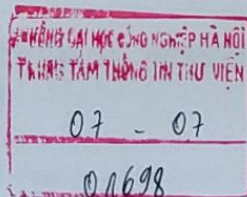 TRƯỜNG ĐẠI HỌC CÔNG NGHIỆP HÀ NỘI
TRUNG TÂM THÔNG TIN THƯ VIỆN
07 - 07
01698